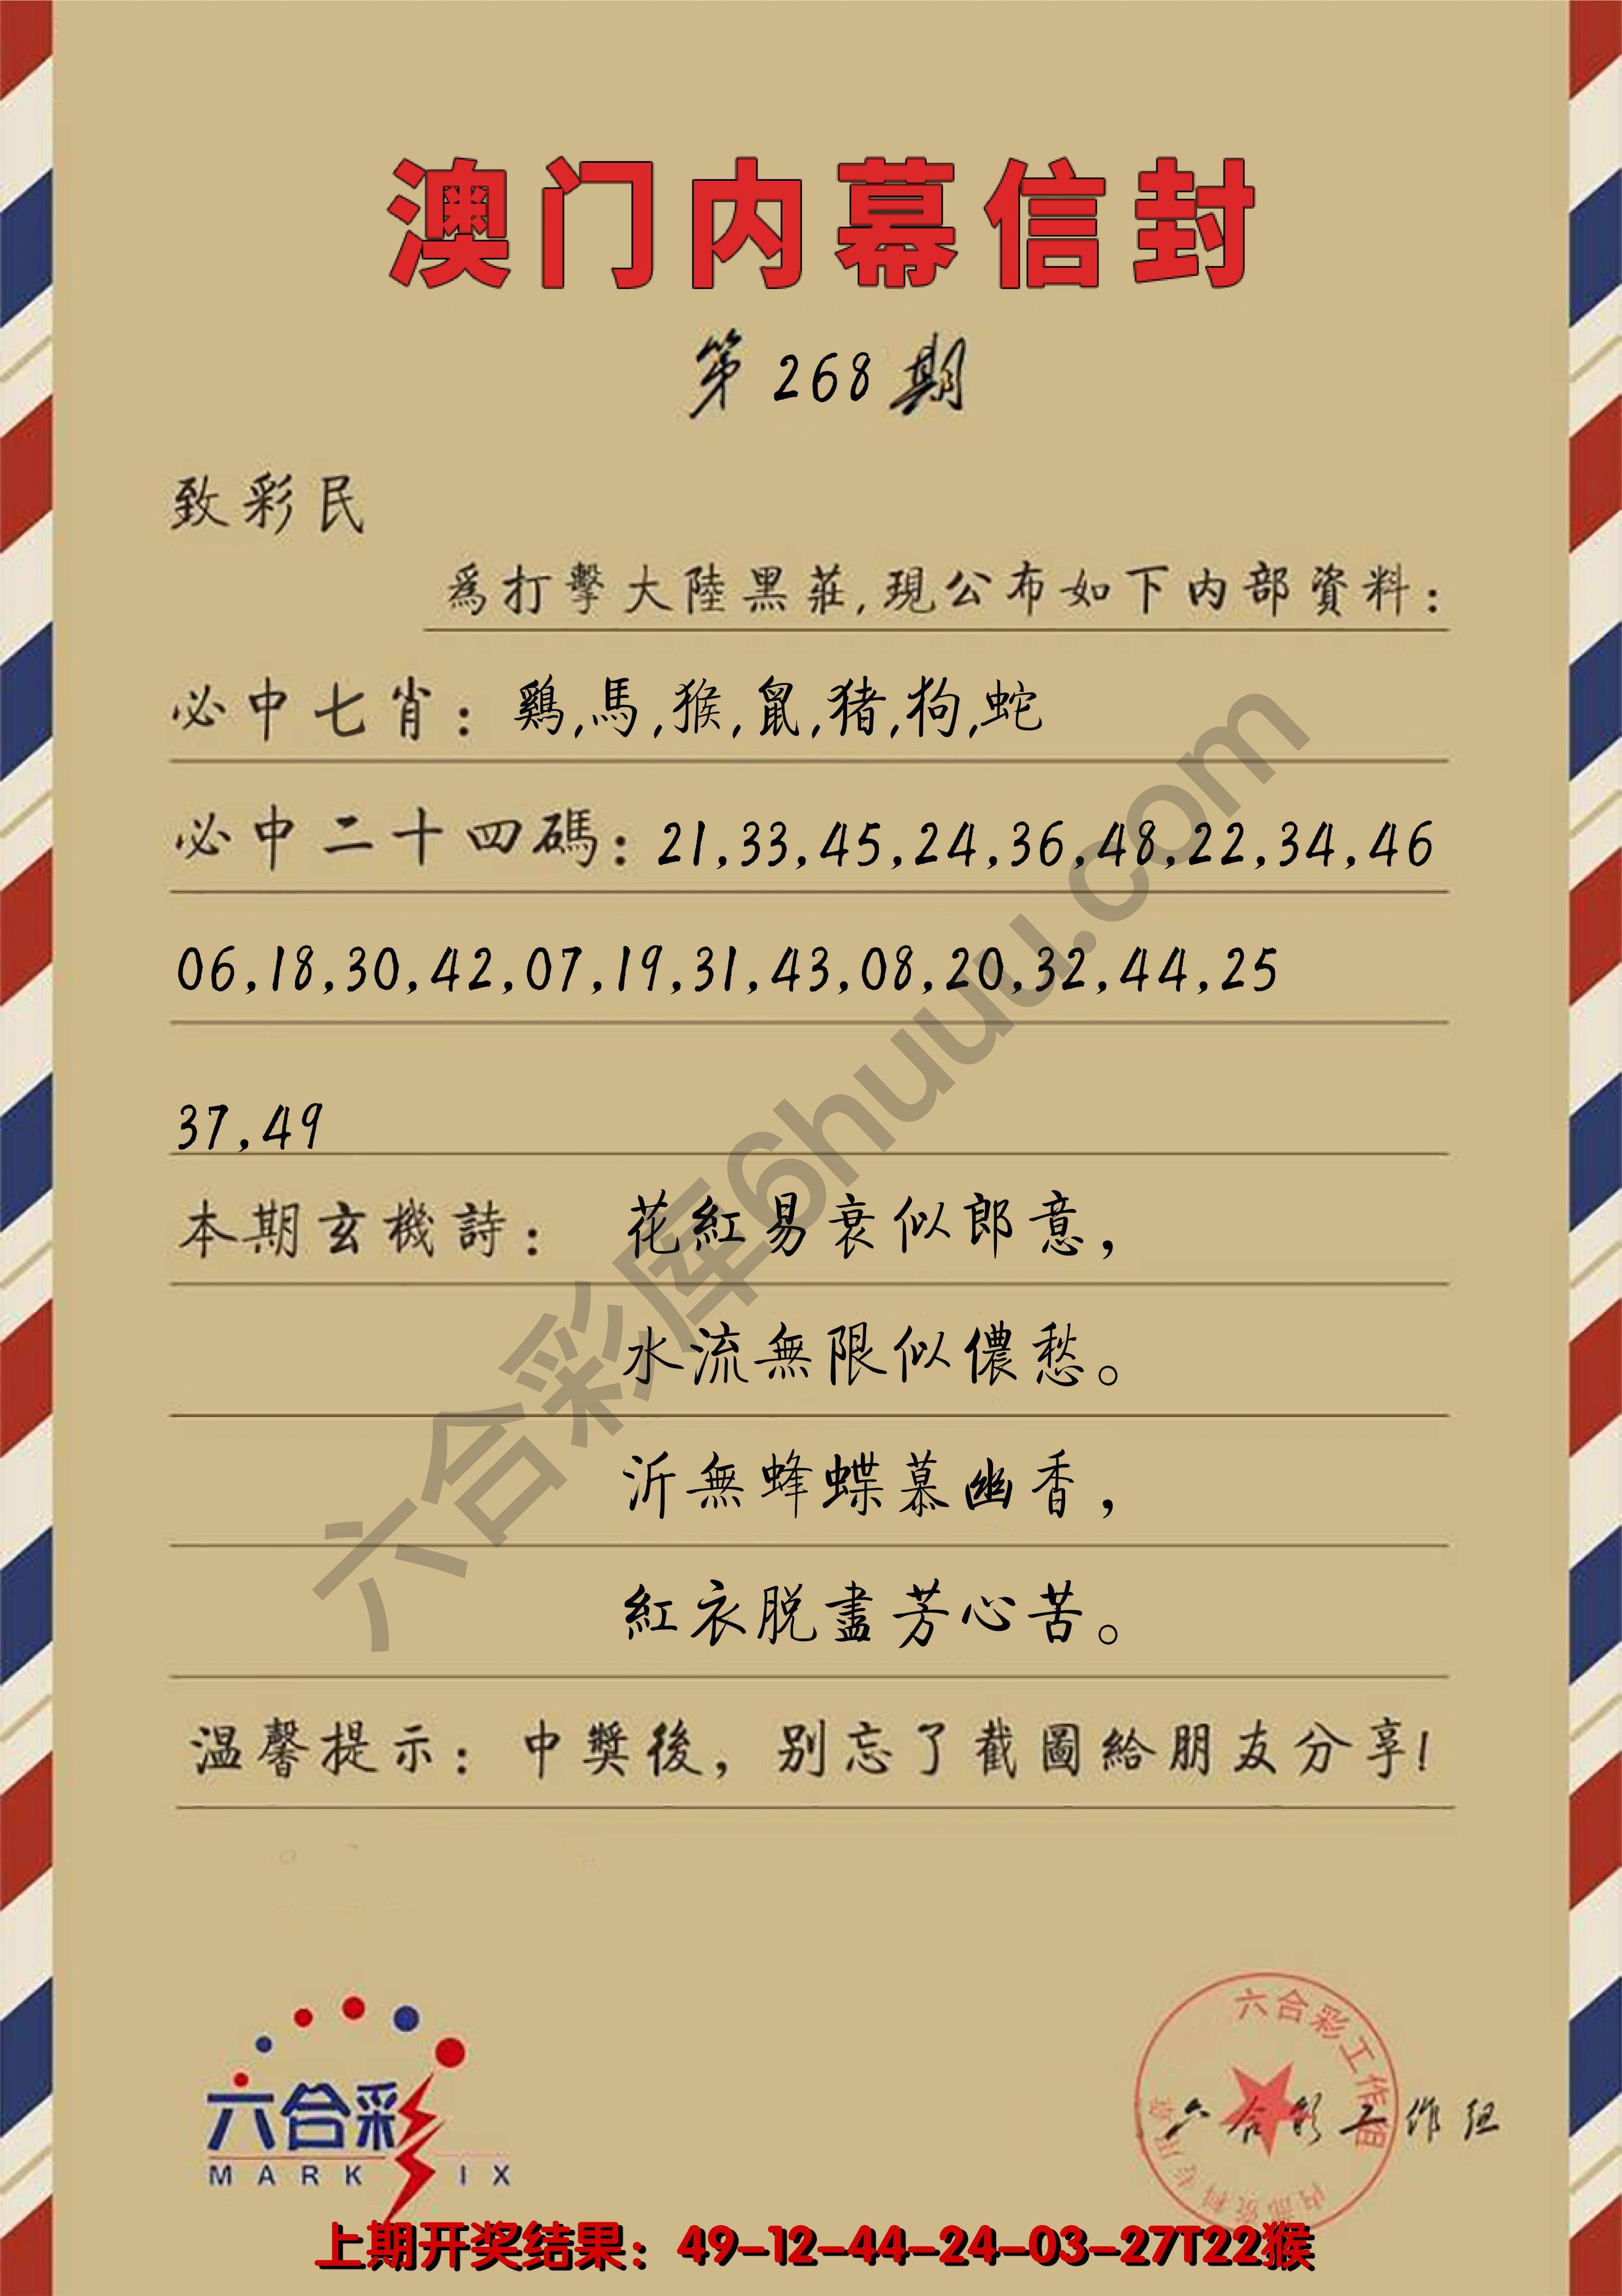 澳门内幕信封
第268期
致彩民
爲打擊大陸黑莊,現公布如下内部資料:
必中七肖: 鷄,馬,猴,鼠,猪,狗,蛇
必中二十四碼: 21,33,45,24,36,48,22,34,46
06,18,30,42,07,19,31,43,08,20,32,44,25
37,49
本期玄機詩: 花紅易衰似郎意,
水流無限似儂愁。
沂無蜂蝶慕幽香,
紅衣脱盡芳心苦。
温馨提示: 中獎後, 别忘了截圖給朋友分享!
六合彩库6huuu.com
六合彩
MARK IX
六合彩工作组
内部资料专用章
六合彩工作组
上期开奖结果: 49-12-44-24-03-27T22猴